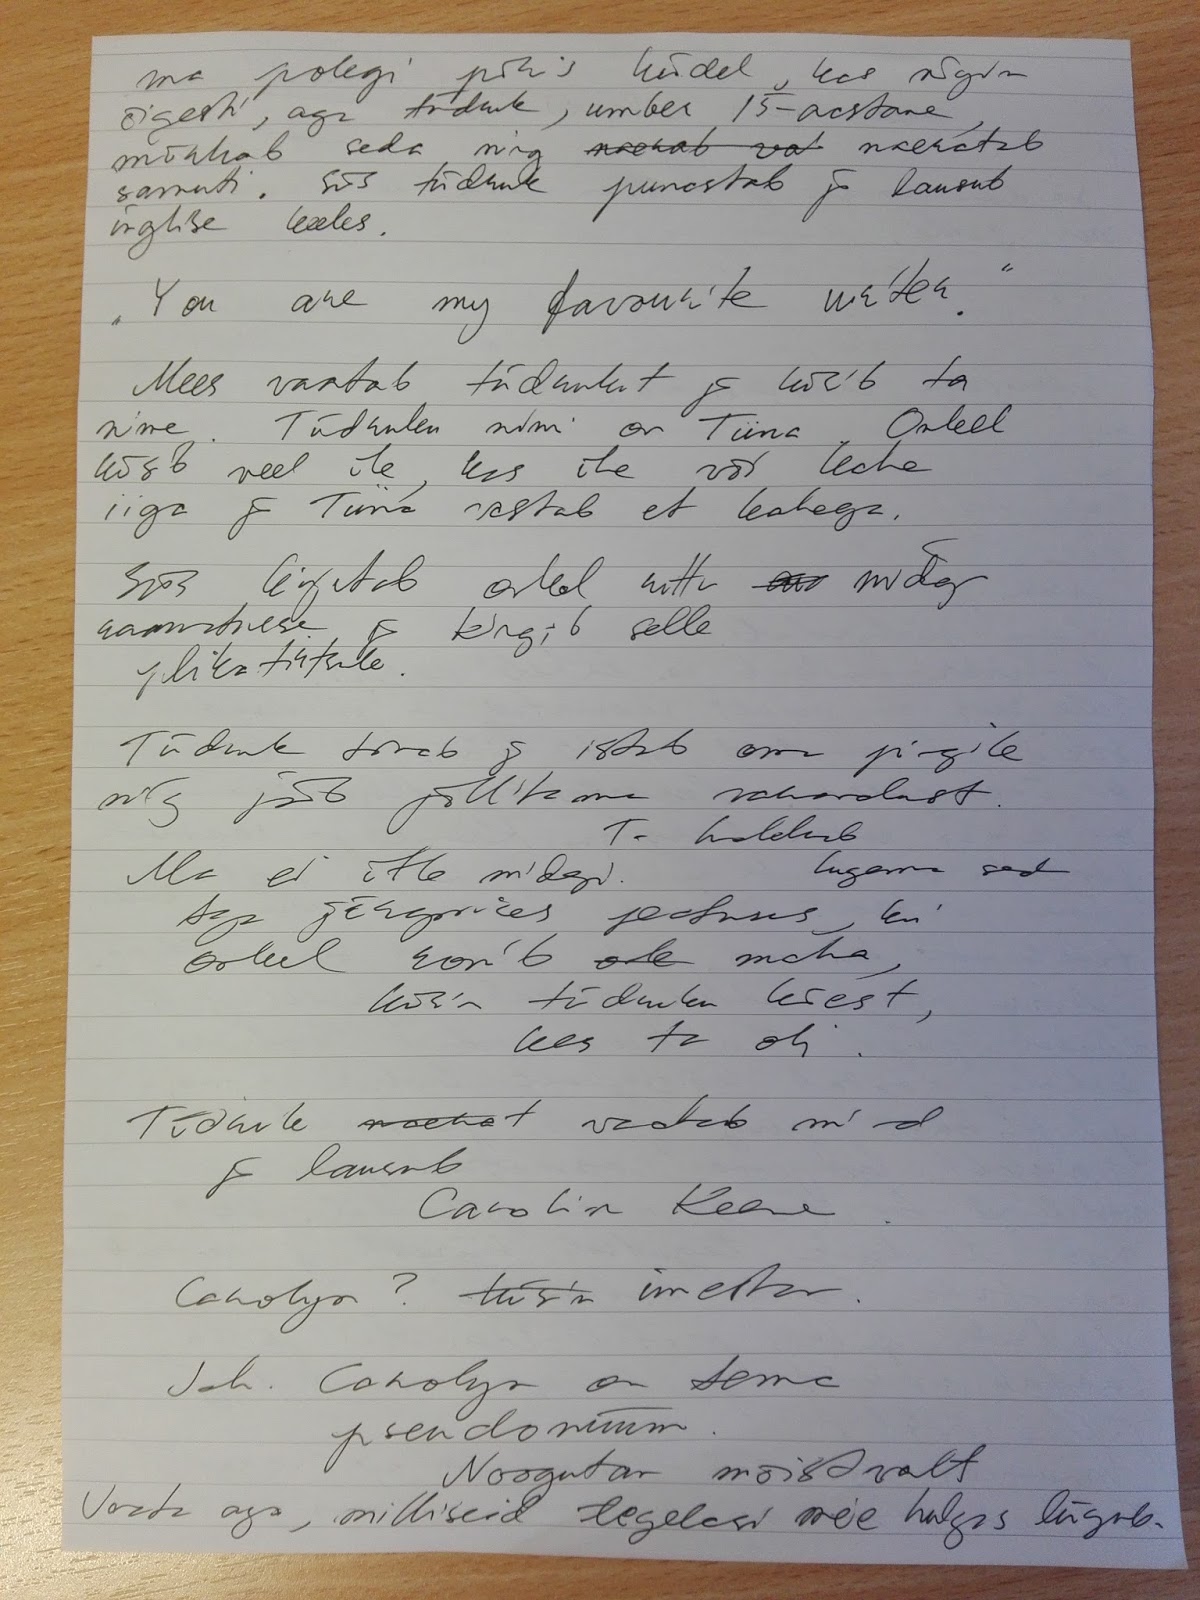 ma polegi päris kindel, kas nägin
õigesti, aga tüdruk, umbes 15-aastane,
märkab seda ning naerab vat naeratab
samuti. Siis tüdruk punastab ja lausub
inglise keeles.
„You are my favourite writer."
Mees vaatab tüdrukut ja küsib ta
nime. Tüdruku nimi on Tiina. Onkel
küsib veel üle, kas ühe või kahe
iiga ja Tiina vastab et kahega.
Siis kirjutab onkel ruttu midagi
raamatusse ja kingib selle
plikatirtsule.
Tüdruk tänab ja istub oma pingile
ning jääb põllitama vanardust.
Ta hakkab
Ma ei ütle midagi. lugema sed
Aga järgmises peatuses, kui
onkel ronib maha,
küsin tüdruku käest,
kes ta oli.
Tüdruk naerat vaatab mind
ja lausub
Carolin Keene.
Carolyn? küsin imestan.
Jah. Carolyn on tema
pseudonüüm.
Noogutan mõistvalt
Vaata aga, milliseid tegelasi meie hulgas liigub.